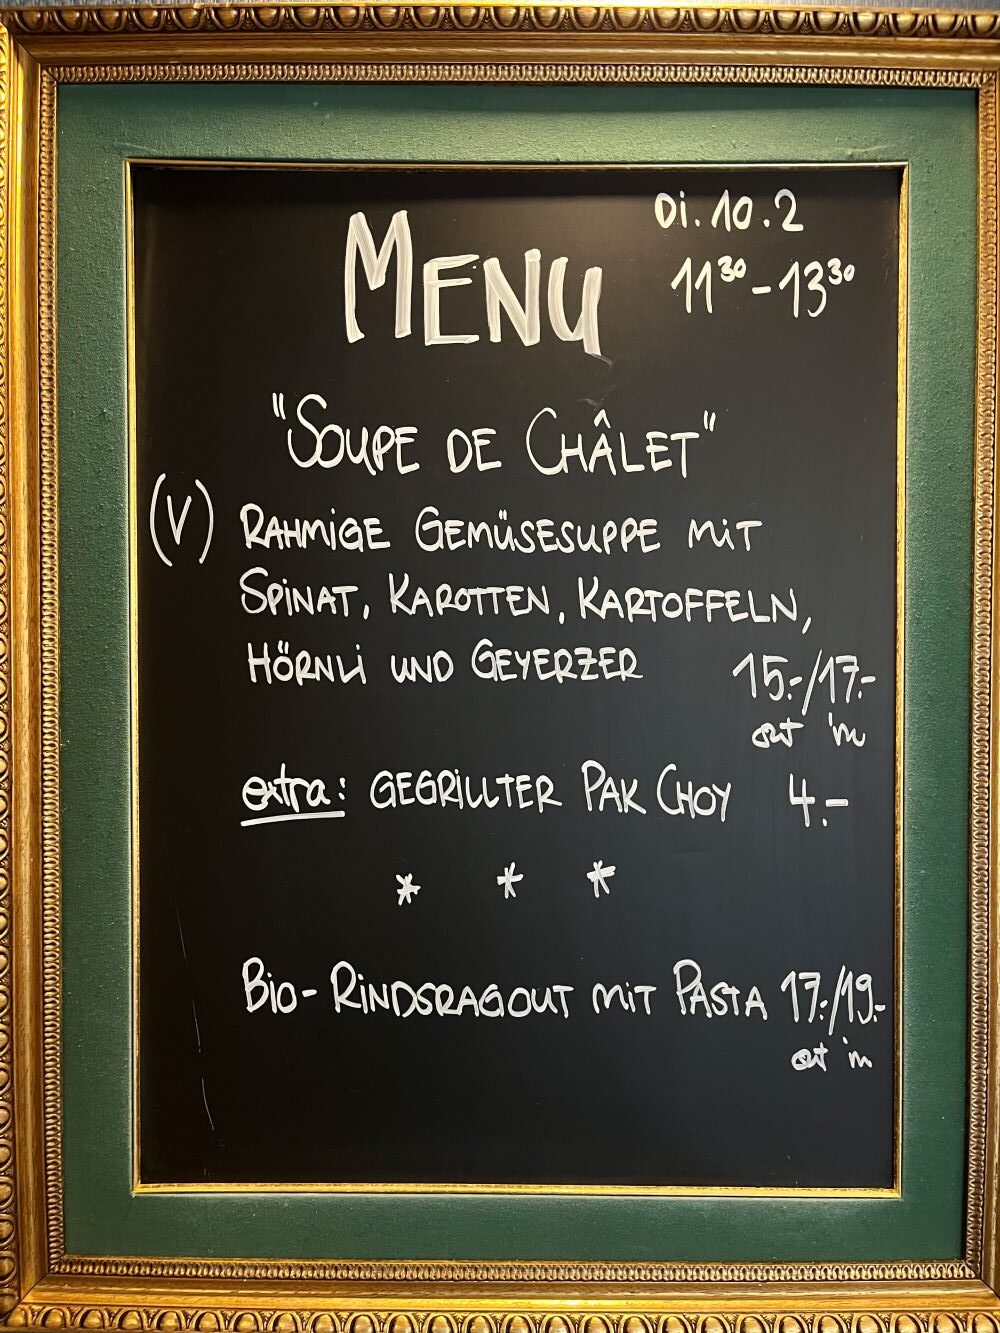 Di. 10.2
MENU
11³⁰-13³⁰
"SOUPE DE CHÂLET"
(V) RAHMIGE GEMÜSESUPPE MIT
SPINAT, KAROTTEN, KARTOFFELN,
HÖRNLI UND GEYERZER 15.-/17.-
out in
extra: GEGRILLTER PAK CHOY 4.-
* * *
BIO-RINDSRAGOUT MIT PASTA 17.-/19.-
out in